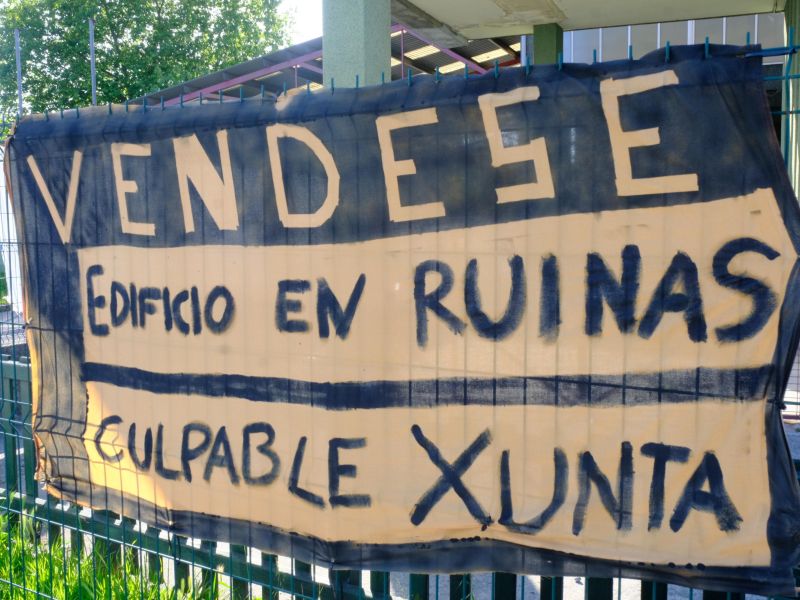 VENDESE
EDIFICIO EN RUINAS
CULPABLE XUNTA